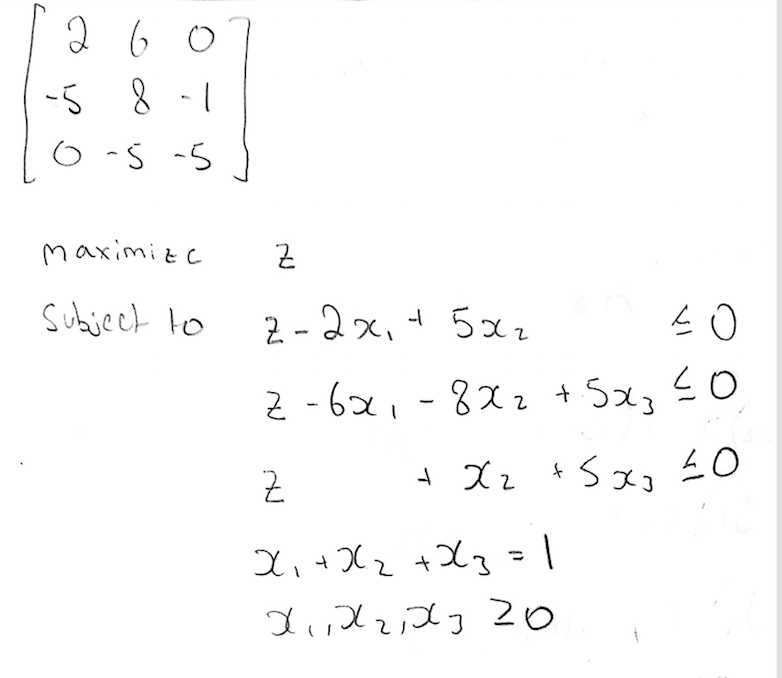 2 6 0
-5 8 -1
0 -5 -5
Maximize z
Subject to z - 2x₁ + 5x₂ ≤ 0
z - 6x₁ - 8x₂ + 5x₃ ≤ 0
z + x₂ + 5x₃ ≤ 0
x₁ + x₂ + x₃ = 1
x₁, x₂, x₃ ≥ 0